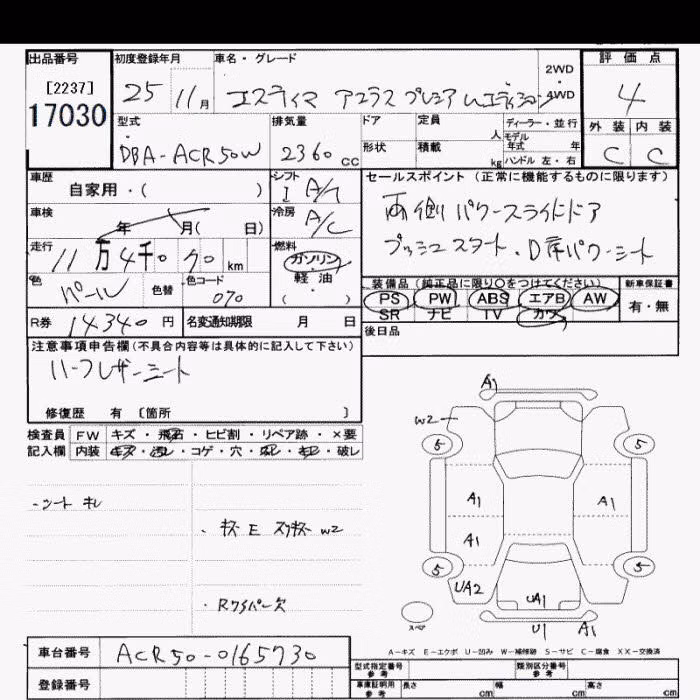 出品番号 初度登録年月 車名・グレード 評価点
[2237] 25 11月 エスティマ アエラス プレミアムエディション 2WD・4WD 4
17030
型式 排気量 ドア 定員 人 ディーラー・並行 外装 内装
DBA-ACR50W 2360 cc 形状 積載 kg モデル年式 年 ハンドル 左・右 C C
車歴 自家用・( ) シフト I A/T セールスポイント (正常に機能するものに限ります)
車検 年 月( 日) 冷房 A/C 両側パワースライドドア
走行 11万4千090km 燃料 ガソリン・軽油・( ) プッシュスタート、D席パワーシート
色 パール 色替 色コード 070 装備品 (純正品に限り○をつけてください) 新車保証書
PS PW ABS エアB AW 有・無
SR ナビ TV カワ
R券 14340円 名変通知期限 月 日 後日品
注意事項申告欄(不具合内容等は具体的に記入して下さい)
ハーフレザーシート
修復歴 有 〔箇所 〕
検査員 FW キズ・飛石・ヒビ割・リペア跡・×要
記入欄 内装 キズ・汚レ・コゲ・穴・・キレ・破レ
・シート キレ
・キズ E スリキズ W2
・Rワイパー欠
A1
W2
5 5
A1 A1
A1
5 5
UA2 UA1
スペア U1 A1
A-キズ E-エクボ U-凹み W-補修跡 S-サビ C-腐食 XX-交換済
車台番号 ACR50-0165730
型式指定番号 参考 類別区分番号 参考
登録番号 車庫証明用 参考 長さ cm 幅 cm 高さ cm